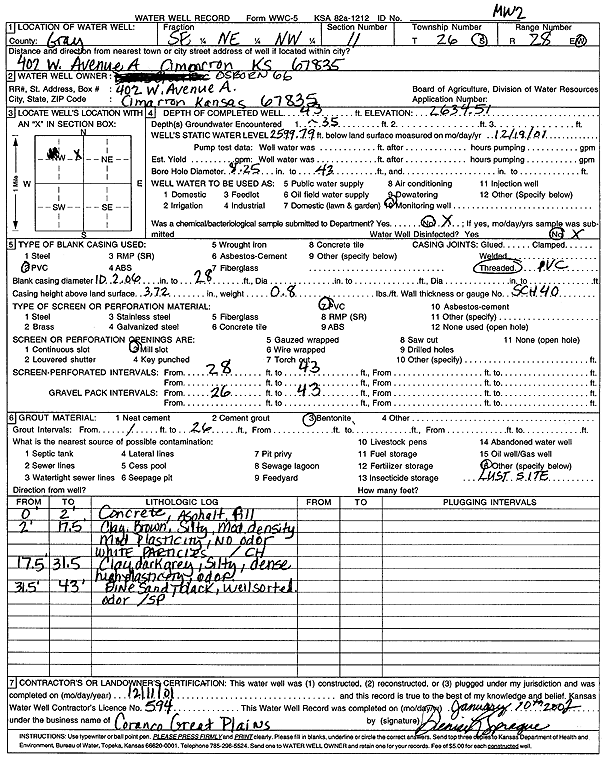 MW2
WATER WELL RECORD Form WWC-5 KSA 82a-1212 ID No.
1 LOCATION OF WATER WELL: Fraction Section Number Township Number Range Number
County: Gray SE ¼ NE ¼ NW ¼ 11 T 26 S R 28 E/W
Distance and direction from nearest town or city street address of well if located within city?
402 W. Avenue A Cimarron KS 67835
2 WATER WELL OWNER: OSBORN 66
RR#, St. Address, Box # : 402 W. Avenue A. Board of Agriculture, Division of Water Resources
City, State, ZIP Code : Cimarron Kansas 67835 Application Number:
3 LOCATE WELL'S LOCATION WITH AN "X" IN SECTION BOX:
N
NW X NE
W E
SW SE
S
1 Mile
4 DEPTH OF COMPLETED WELL 43 ft. ELEVATION: 2634.51
Depth(s) Groundwater Encountered 1. 35 ft. 2. ft. 3. ft.
WELL'S STATIC WATER LEVEL 2599.79 ft. below land surface measured on mo/day/yr 12/19/01
Pump test data: Well water was ft. after hours pumping gpm
Est. Yield gpm: Well water was ft. after hours pumping gpm
Bore Hole Diameter 8.25 in. to 43 ft., and in. to ft.
WELL WATER TO BE USED AS: 5 Public water supply 8 Air conditioning 11 Injection well
1 Domestic 3 Feedlot 6 Oil field water supply 9 Dewatering 12 Other (Specify below)
2 Irrigation 4 Industrial 7 Domestic (lawn & garden) 10 Monitoring well
Was a chemical/bacteriological sample submitted to Department? Yes No X ; If yes, mo/day/yrs sample was submitted Water Well Disinfected? Yes No X
5 TYPE OF BLANK CASING USED: 5 Wrought Iron 8 Concrete tile CASING JOINTS: Glued Clamped
1 Steel 3 RMP (SR) 6 Asbestos-Cement 9 Other (specify below) Welded
2 PVC 4 ABS 7 Fiberglass Threaded. PVC
Blank casing diameter ID 2.06 in. to 28 ft., Dia in. to ft., Dia in. to ft.
Casing height above land surface 3.72 in., weight 0.8 lbs./ft. Wall thickness or gauge No. SCH40
TYPE OF SCREEN OR PERFORATION MATERIAL: 7 PVC 10 Asbestos-cement
1 Steel 3 Stainless steel 5 Fiberglass 8 RMP (SR) 11 Other (specify)
2 Brass 4 Galvanized steel 6 Concrete tile 9 ABS 12 None used (open hole)
SCREEN OR PERFORATION OPENINGS ARE: 5 Gauzed wrapped 8 Saw cut 11 None (open hole)
1 Continuous slot 3 Mill slot 6 Wire wrapped 9 Drilled holes
2 Louvered shutter 4 Key punched 7 Torch cut 10 Other (specify) ft.
SCREEN-PERFORATED INTERVALS: From 28 ft. to 43 ft., From ft. to ft.
From ft. to ft., From ft. to ft.
GRAVEL PACK INTERVALS: From 26 ft. to 43 ft., From ft. to ft.
From ft. to ft., From ft. to ft.
6 GROUT MATERIAL: 1 Neat cement 2 Cement grout 3 Bentonite 4 Other
Grout Intervals: From 1 ft. to 26 ft., From ft. to ft., From ft. to ft.
What is the nearest source of possible contamination: 10 Livestock pens 14 Abandoned water well
1 Septic tank 4 Lateral lines 7 Pit privy 11 Fuel storage 15 Oil well/Gas well
2 Sewer lines 5 Cess pool 8 Sewage lagoon 12 Fertilizer storage 16 Other (specify below)
3 Watertight sewer lines 6 Seepage pit 9 Feedyard 13 Insecticide storage LUST SITE
Direction from well? How many feet?
FROM TO LITHOLOGIC LOG FROM TO PLUGGING INTERVALS
0' 2' Concrete, Asphalt, Fill
2' 17.5 Clay, Brown, Silty, Mod. density
Mod Plasticity, NO odor
WHITE PARTICLES / CH
17.5 31.5 Clay, dark grey, Silty, dense
high plasticity, odor
31.5' 43' Fine Sand, black, well sorted
odor / SP
7 CONTRACTOR'S OR LANDOWNER'S CERTIFICATION: This water well was (1) constructed, (2) reconstructed, or (3) plugged under my jurisdiction and was
completed on (mo/day/year) 12/11/01 and this record is true to the best of my knowledge and belief. Kansas
Water Well Contractor's Licence No. 594 This Water Well Record was completed on (mo/day/yr) January 10th 2002
under the business name of Coranco Great Plains by (signature)
INSTRUCTIONS: Use typewriter or ball point pen. PLEASE PRESS FIRMLY and PRINT clearly. Please fill in blanks, underline or circle the correct answers. Send top three copies to Kansas Department of Health and
Environment, Bureau of Water, Topeka, Kansas 66620-0001. Telephone 785-296-5524. Send one to WATER WELL OWNER and retain one for your records. Fee of $5.00 for each constructed well.